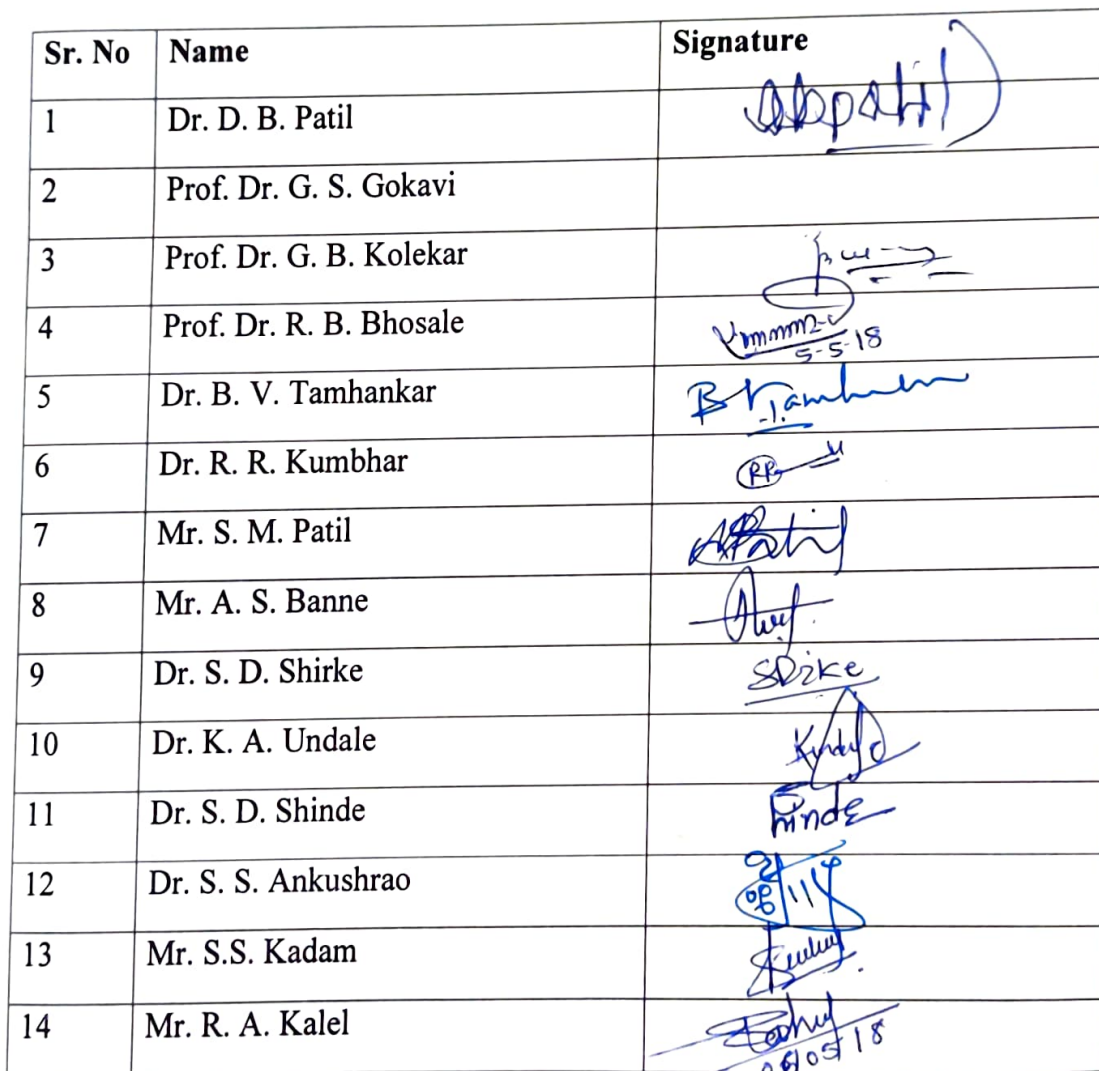 Sr. No Name Signature
1 Dr. D. B. Patil dbpatil
2 Prof. Dr. G. S. Gokavi
3 Prof. Dr. G. B. Kolekar
4 Prof. Dr. R. B. Bhosale
5-5-18
5 Dr. B. V. Tamhankar
6 Dr. R. R. Kumbhar RR
7 Mr. S. M. Patil Patil
8 Mr. A. S. Banne
9 Dr. S. D. Shirke
10 Dr. K. A. Undale
11 Dr. S. D. Shinde Shinde
12 Dr. S. S. Ankushrao
13 Mr. S.S. Kadam
14 Mr. R. A. Kalel
05/18